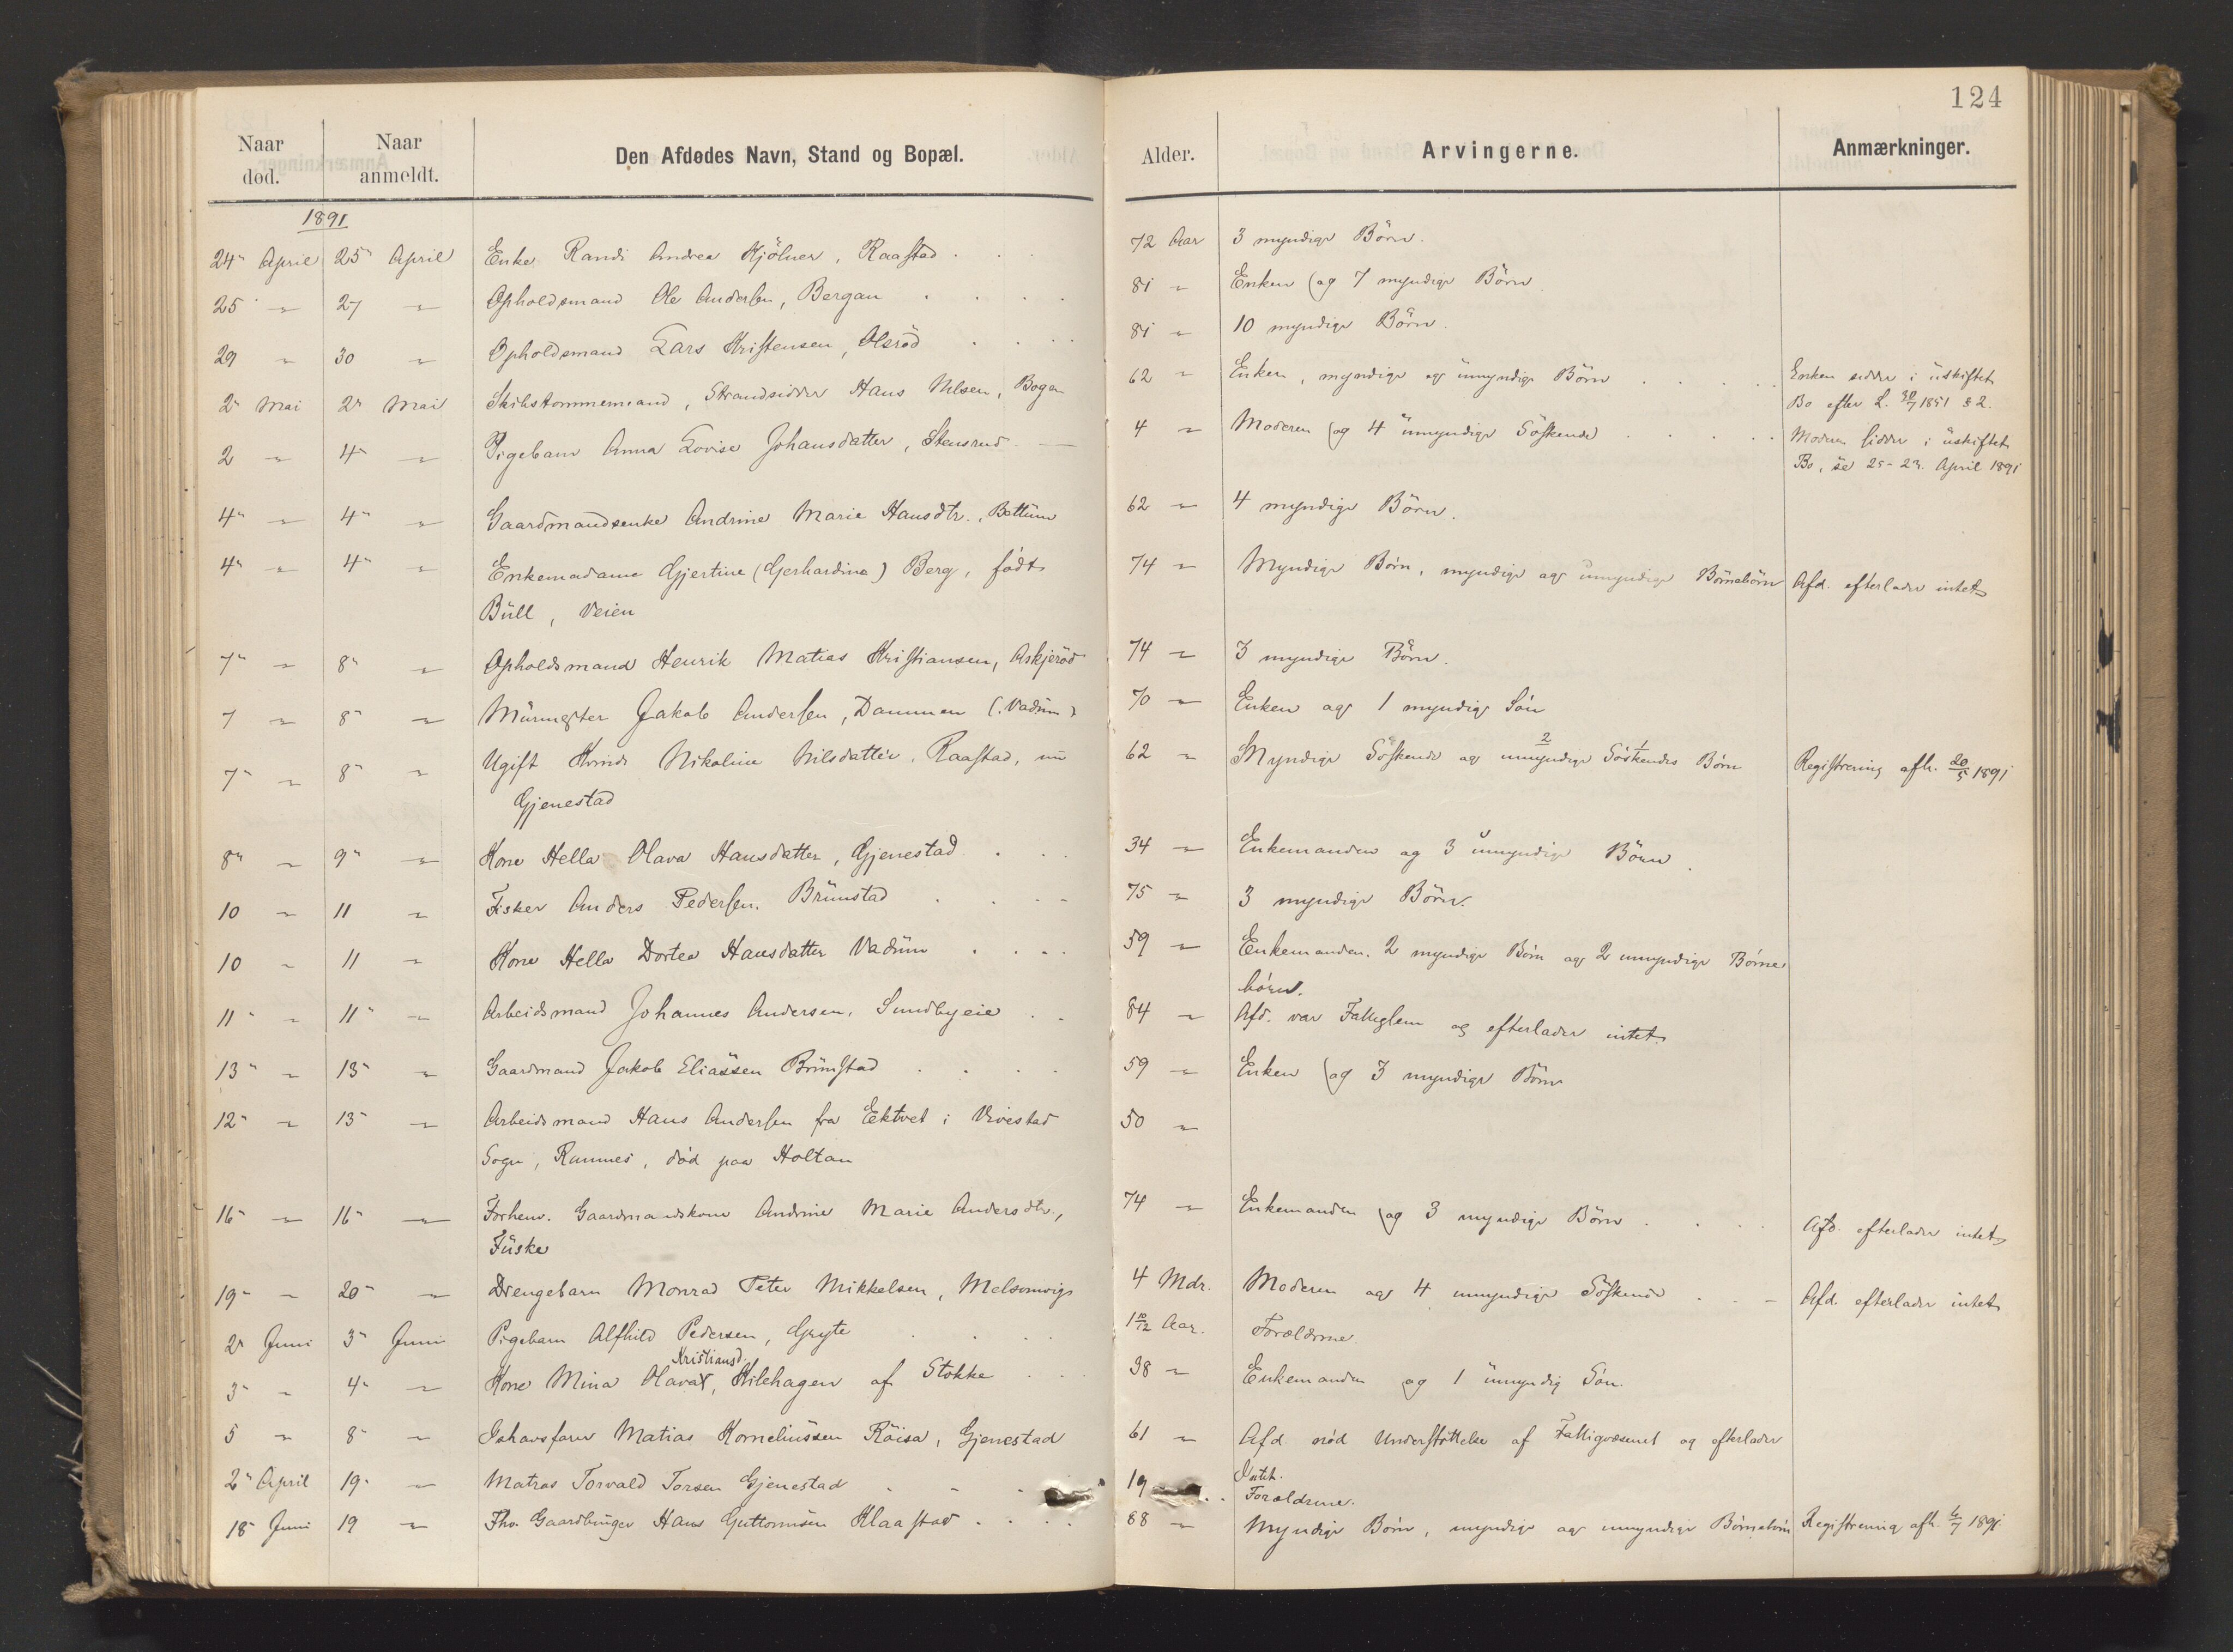 124
Naar død. Naar anmeldt. Den Afdødes Navn, Stand og Bopæl. Alder. Arvingerne. Anmærkninger.
1891
24 April 25 April Enke Randi Andrea Kjölner, Raastad . . . 72 Aar 3 myndige Börn.
25 " 27 " Opholdsmand Ole Andersen, Bergan . . . . 81 " Enken og 7 myndige Börn.
29 " 30 " Opholdsmand Lars Kristensen, Olsröd . . . . 81 " 10 myndige Börn.
2 Mai 2 Mai Skibstømmermand, Strandsidder Hans Nilsen, Bogen 62 " Enken, myndige og umyndige Börn . . . . Enken sidder i uskiftet
Bo efter L. 30/7 1851 § 2.
2 " 4 " Pigebarn Anna Lovise Johansdatter, Stensrud 4 " Moderen og 4 umyndige Söskende . . . . . Moderen sidder i uskiftet
Bo, se 25-23 April 1891
4 " 4 " Gaardmandsenke Andrine Marie Hansdtr., Bettum 62 " 4 myndige Börn.
4 " 4 " Enkemadame Gjertine (Gerhardina) Berg, födt 74 " Myndige Börn, myndige og umyndige Börnebörn Afd. efterlader intet
Bull, Veien
7 " 8 " Opholdsmand Henrik Matias Kristiansen, Askjeröd 74 " 3 myndige Börn.
7 " 8 " Murmester Jakob Andersen, Dammen (Vadum) 70 " Enken og 1 myndig Sön
7 " 8 " Ugift Kvinde Nikoline Nilsdatter, Raastad, nu 62 " Myndige Söskende og 2 umyndige Söskendes Börn Registrering afh. 20/5 1891
Gjenestad
8 " 9 " Kone Hella Olava Hansdatter, Gjenestad . . . 34 " Enkemanden og 3 umyndige Börn.
10 " 11 " Fisker Anders Pedersen, Brunstad . . . . 75 " 3 myndige Börn.
10 " 11 " Kone Hella Dortea Hansdatter Vadum . . . . 59 " Enkemanden, 2 myndige Börn og 2 umyndige Börne-
börn.
11 " 11 " Arbeidsmand Johannes Andersen, Sundbyeie . . 84 " Afd. var Fattiglem og efterlader intet.
13 " 13 " Gaardmand Jakob Eliassen Brunstad . . . . 59 " Enken og 3 myndige Börn
12 " 13 " Arbeidsmand Hans Andersen fra Ektvet i Vivestad 50 "
Sogn, Ramnes, död paa Holtan
16 " 16 " Forhenv. Gaardmandskone Andrine Marie Andersdtr., 74 " Enkemanden og 3 myndige Börn . . . . Afd. efterlader intet
Fuske
19 " 20 " Drengebarn Monrad Peter Mikkelsen, Melsomvig 4 Mdr. Moderen og 4 umyndige Söskende . . . Afd. efterlader intet
2 Juni 3 Juni Pigebarn Alfhild Pedersen, Gryte . . . . 1 10/12 Aar. Forældrene.
Kristiansd.
3 " 4 " Kone Mina Olava, Kilehagen af Stokke . . . 38 " Enkemanden og 1 umyndig Sön.
5 " 8 " Ishavsfarer Matias Korneliussen Röisa, Gjenestad 61 " Afd. nöd Understöttelse af Fattigvæsenet og efterlader
Intet.
2 April 19 " Matros Torvald Torsen Gjenestad . . . 19 . . Forældrene.
18 Juni 19 " Fhv. Gaardbruger Hans Guttormsen Klaastad . . . . 88 " Myndige Börn, myndige og umyndige Börnebörn Registrering afh. 6/7 1891